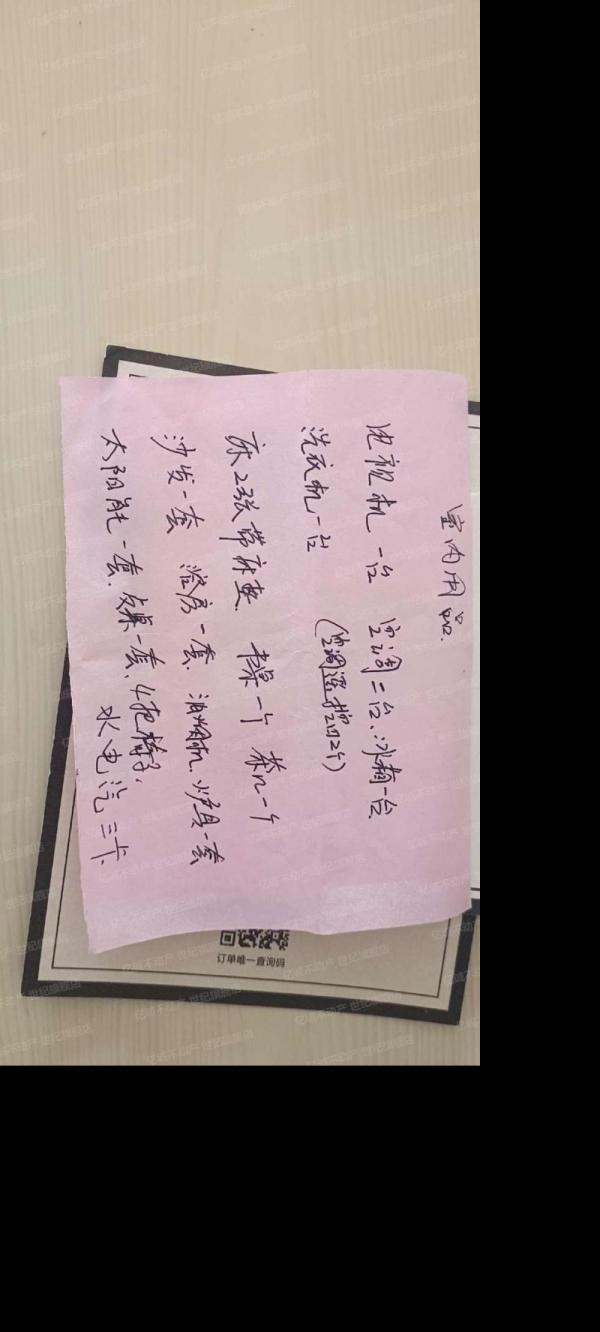 室内用品
电视机一台 空调二台、冰箱一台
洗衣机一台 (空调遥控2个)
床2张带床垫 书桌一个 茶几一个
沙发一套 浴房一套、油烟机、炉具一套
太阳能一套、桌一套、4把椅子、
水电汽三卡
订单唯一查询码
亿城不动产 世纪旗舰店